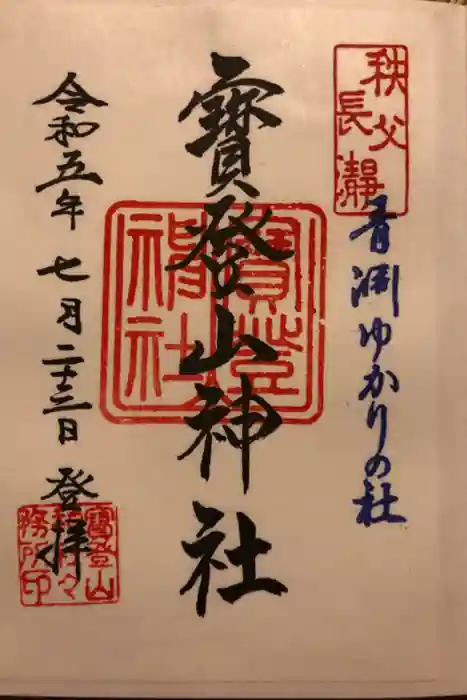 秩父
長瀞
青淵ゆかりの社
寶登山神社
寶登
神社
令和五年七月二十三日登拝
寶登山
務所印